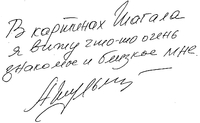 В картинах Шагала
я вижу что-то очень
знакомое и близкое мне